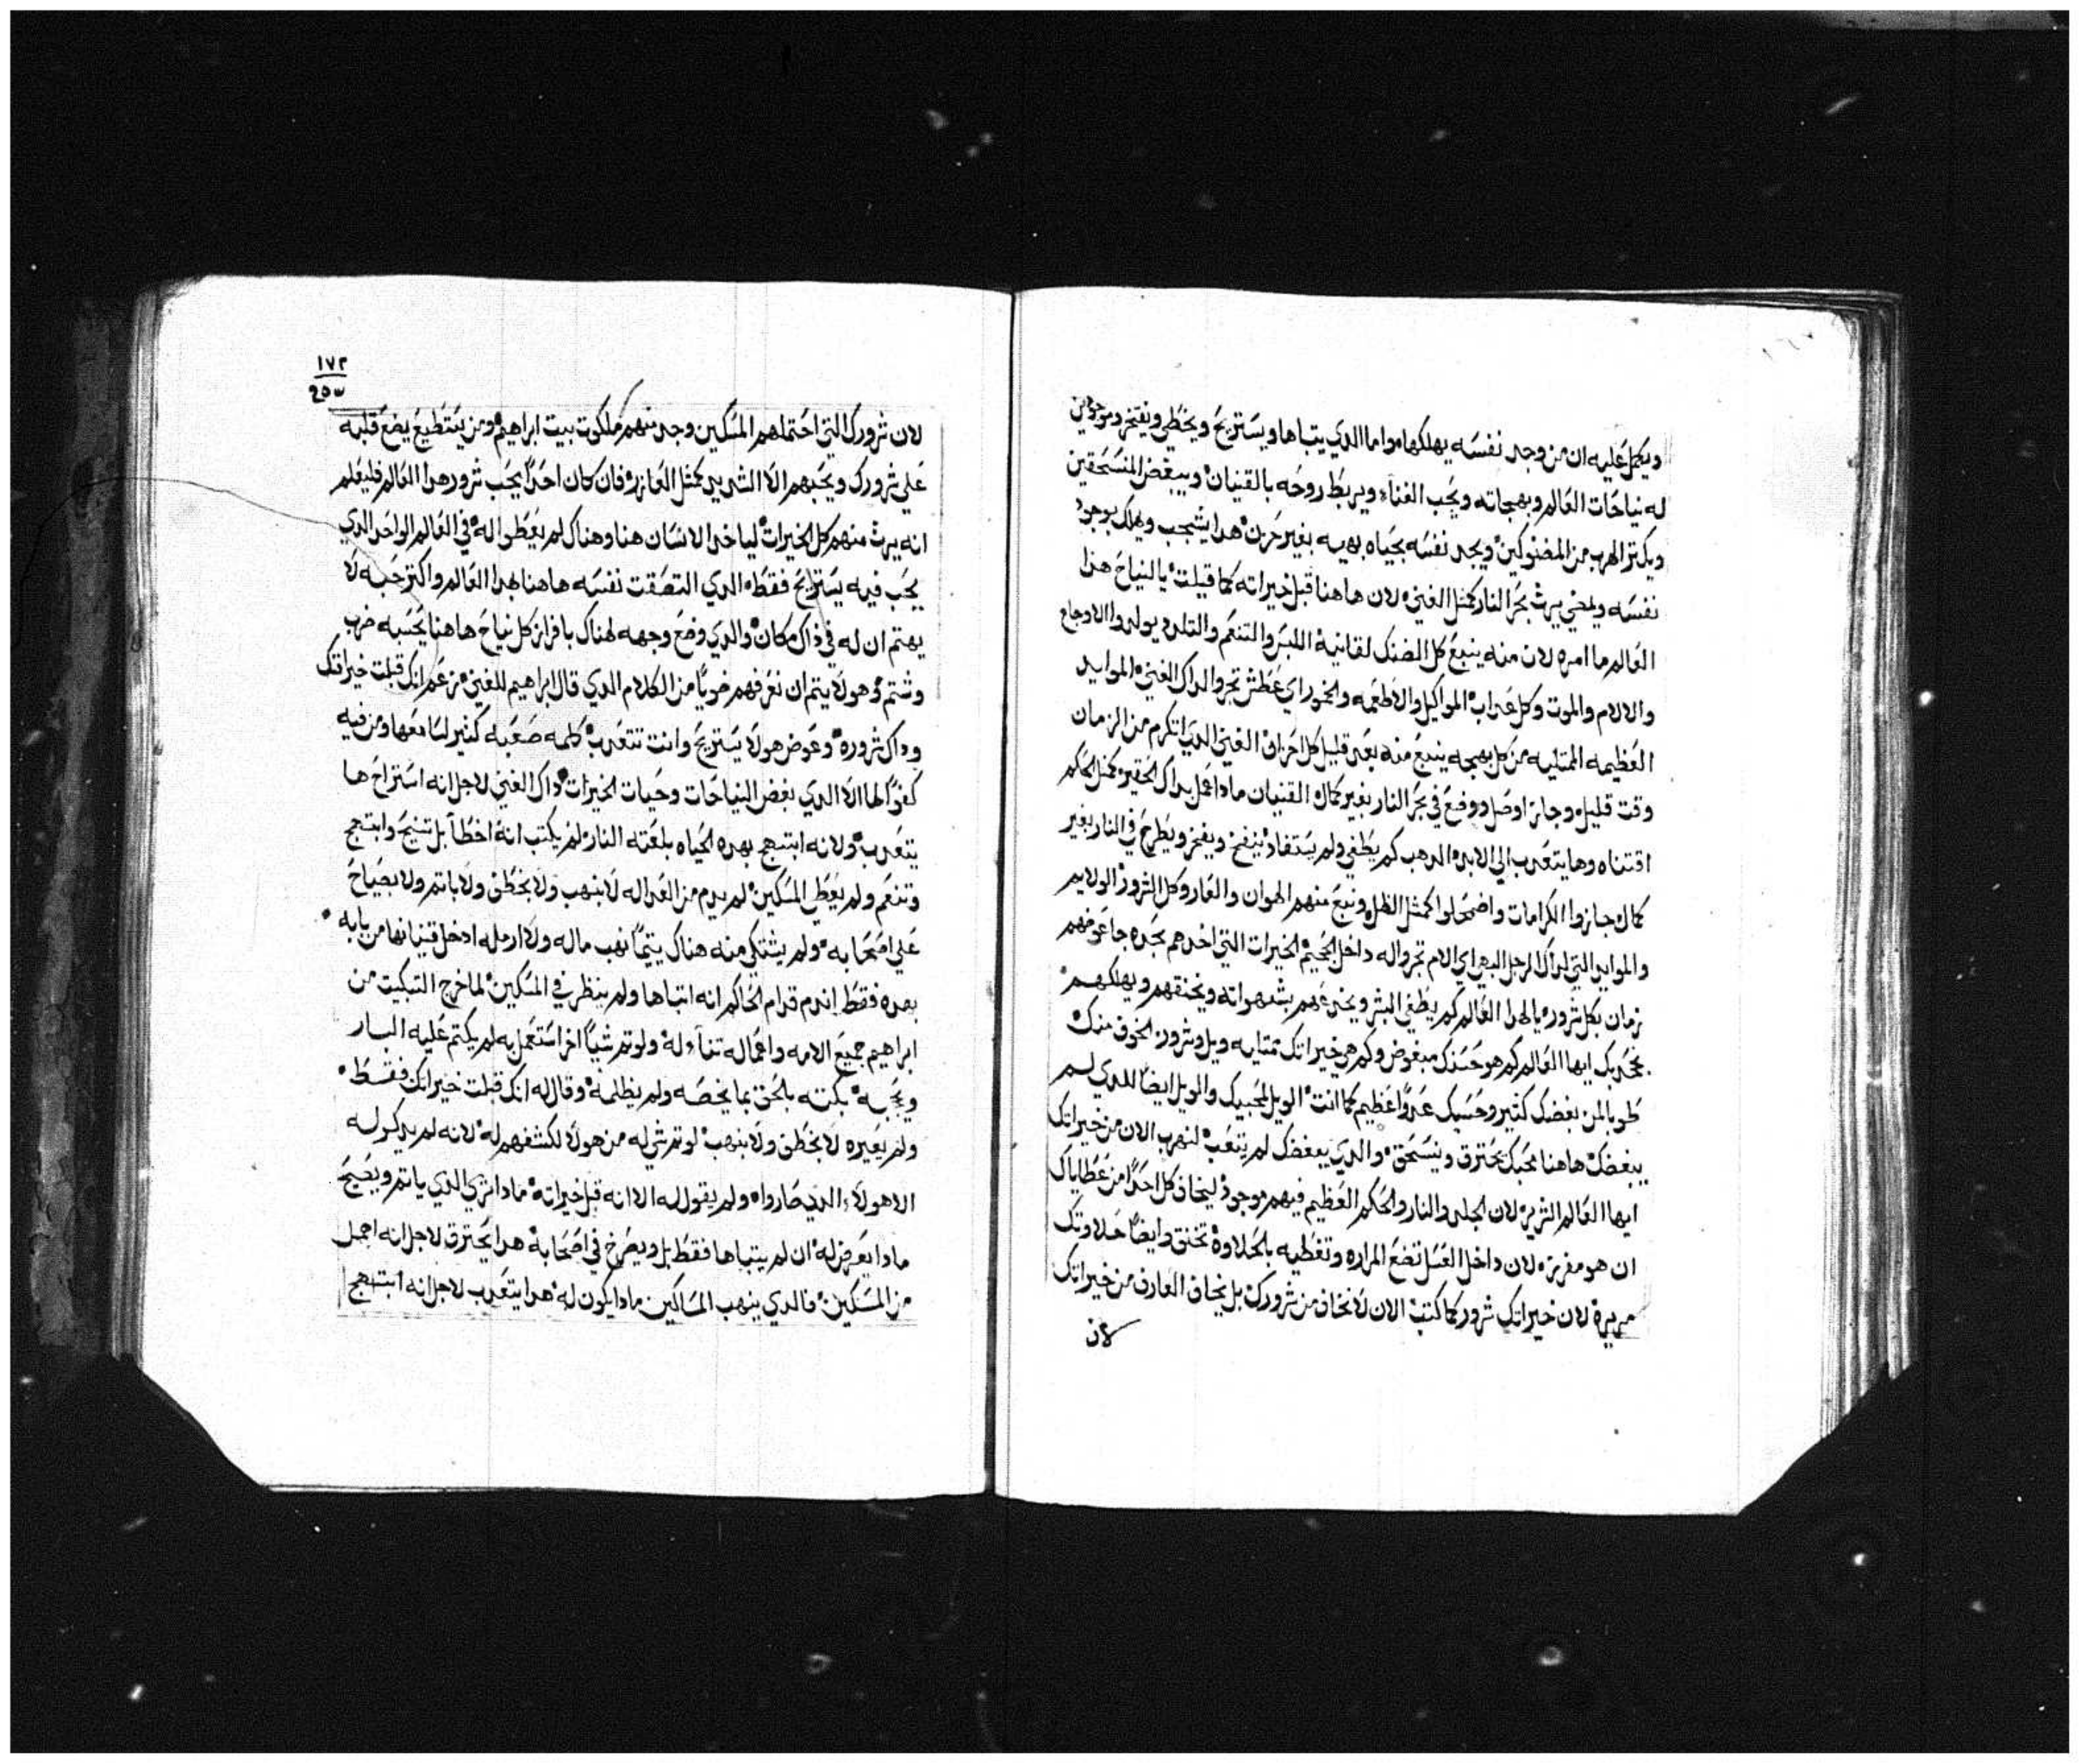 ويكمل عليه ان من وجد نفسه يهلكها واما الدي يتباها ويستريح ويخطي ويفتخر وموجودين
له نياحات العالم وبهجاته ويحب الغناء ويربط روحه بالقنيان ويبغض المنسحقين
ويكتر الهرب من المضنوكين ويجد نفسه بحياه بهيه بغير حزن هدا يشجب ويهلك بوجود
نفسه ويمضي يرث بحر النار كمثل الغني لان هاهنا قبل خيراته كما قيلت يا لنياح هذا
العالم ما امره لان منه ينبع كل الضنك لقانيه اللبس والتنعم والتلدد يولدوا الاوجاع
والالام والموت وكل عداب المواكيل والاطعمه والخمور اي عطش تجر والداك الغني الموايد
العظيمه الممتليه من كل بهجه ينبع منه بعد قليل كل احزان الغني الدي اتكرم من الزمان
وقت قليل وجاز اوصل ووضع في بحر النار بغير كمال القنيان مادا عمل بداك الحقير كمثل الحاكم
اقتناه وها يتعدب الي الابد الدهب كم يطغي ولم يستفاد ينفخ ويفخر ويطرح في النار بغير
كمال جازوا الكرامات واضمحلوا كمثل الظل ونبع منهم الهوان والعار وكل الشرور الولايم
والموايد التي لداك الرجل البهي اي الام تجر واله داخل الجحيم الخيرات التي اخدهم بجده جا عوضهم
زمان بكل شروره يا لهدا العالم كم يطغي البشر ويخدعهم بشهواته ويخنقهم ويهلكهم
مجدبك ايها العالم كم هو حسدك مبغوض وكم هي خيراتك ممتليه ويل وشرور الخوف منك
طوبا لمن بغضك كتير وحسبك عدوا عظيم كما انت الويل لمحبيك والويل ايضا للدي لم
يبغضك هاهنا محبك يحترق وينسحق والدي يبغضك لم يتعب لنهرب الان من خيراتك
ايها العالم الشرير لان الجلد والنار والحكم العظيم فيهم موجود ليخاف كل احدا من عطاياك
ان هو مفرز لان داخل العسل تضع المراره وتغطيه بالحلاوة تخنق وايضا حلاوتك
مريرة لان خيراتك شرور كما كتبت الان لا نخاف من شرورك بل يخاف العارف من خيراتك
لان
١٧٢
لان شرورك التي احتملهم المسكين وجد منهم ملكوت بيت ابراهيم ومن يستطيع يضع قلبه
علي شرورك ويحبهم الا الشديد كمثل العازر فان كان احدا يحب شرور هدا العالم فليعلم
انه يرث منهم كل الخيرات لياخد الانسان هنا وهناك لم يعطوا له في العالم الواحد الدي
يحب فيه يستريح فقط الدي التصقت نفسه هاهنا بهدا العالم واكتر حبه لا
يهتم ان له في داك مكان والدي وضع وجهه لهناك بافراز كل نياح هاهنا يحسبه ضرب
وشتم وهولا يتم ان نعرفهم خويا من الكلام الدي قال ابراهيم للغني من عمرانك قبلت خيراتك
وداك شروره وعوض هولا يستريح وانت تتعدب كلمه صعبه كتير لسامعها ومن فيه
كفوا لها الا الدي بغض النياحات وحيات الخيرات داك الغني لاجل انه استراح ها
يتعدب ولانه ابتهج بهده الحياه بلعته النار لم يكتب انه اخطا بل تنيح وابتهج
وتنعم ولم يعط المسكين لم يدم من العداله لا بنهب ولا بخطف ولا باتم ولا بصياح
علي اصحابه ولم يشتكي منه هناك يتيما نهب ماله ولا ارمله ادخل قنيانها من بابه
بهده فقط اندم قدام الحاكم انه اتباها ولم ينظر في المسكين لما خرج التبكيت من
ابراهيم جميع الامه واعماله تناء له ولو تم شيا اخر استعمل به لم يكتم عليه البار
ويحبه بكته بالحق بما يخصه ولم يظلمه وقال له انك قبلت خيراتك فقسط
ولم يعيره لا بخطف ولا بنهب لو تم شي له من هولا لكشفهم له لانه لم يدكر له
الا هولاء الدي صاروا ولم يقول له الا انه قبل خيراته مادا تري الدي ياتم ويصيح
مادا يعرض له ان لم يتباها فقط بل ويصرخ في اصحابه هدا يحترق لاجل انه اهمل
من المسكين فالدي ينهب المساكين مادا يكون له هدا يتعدب لاجل انه ابتهج